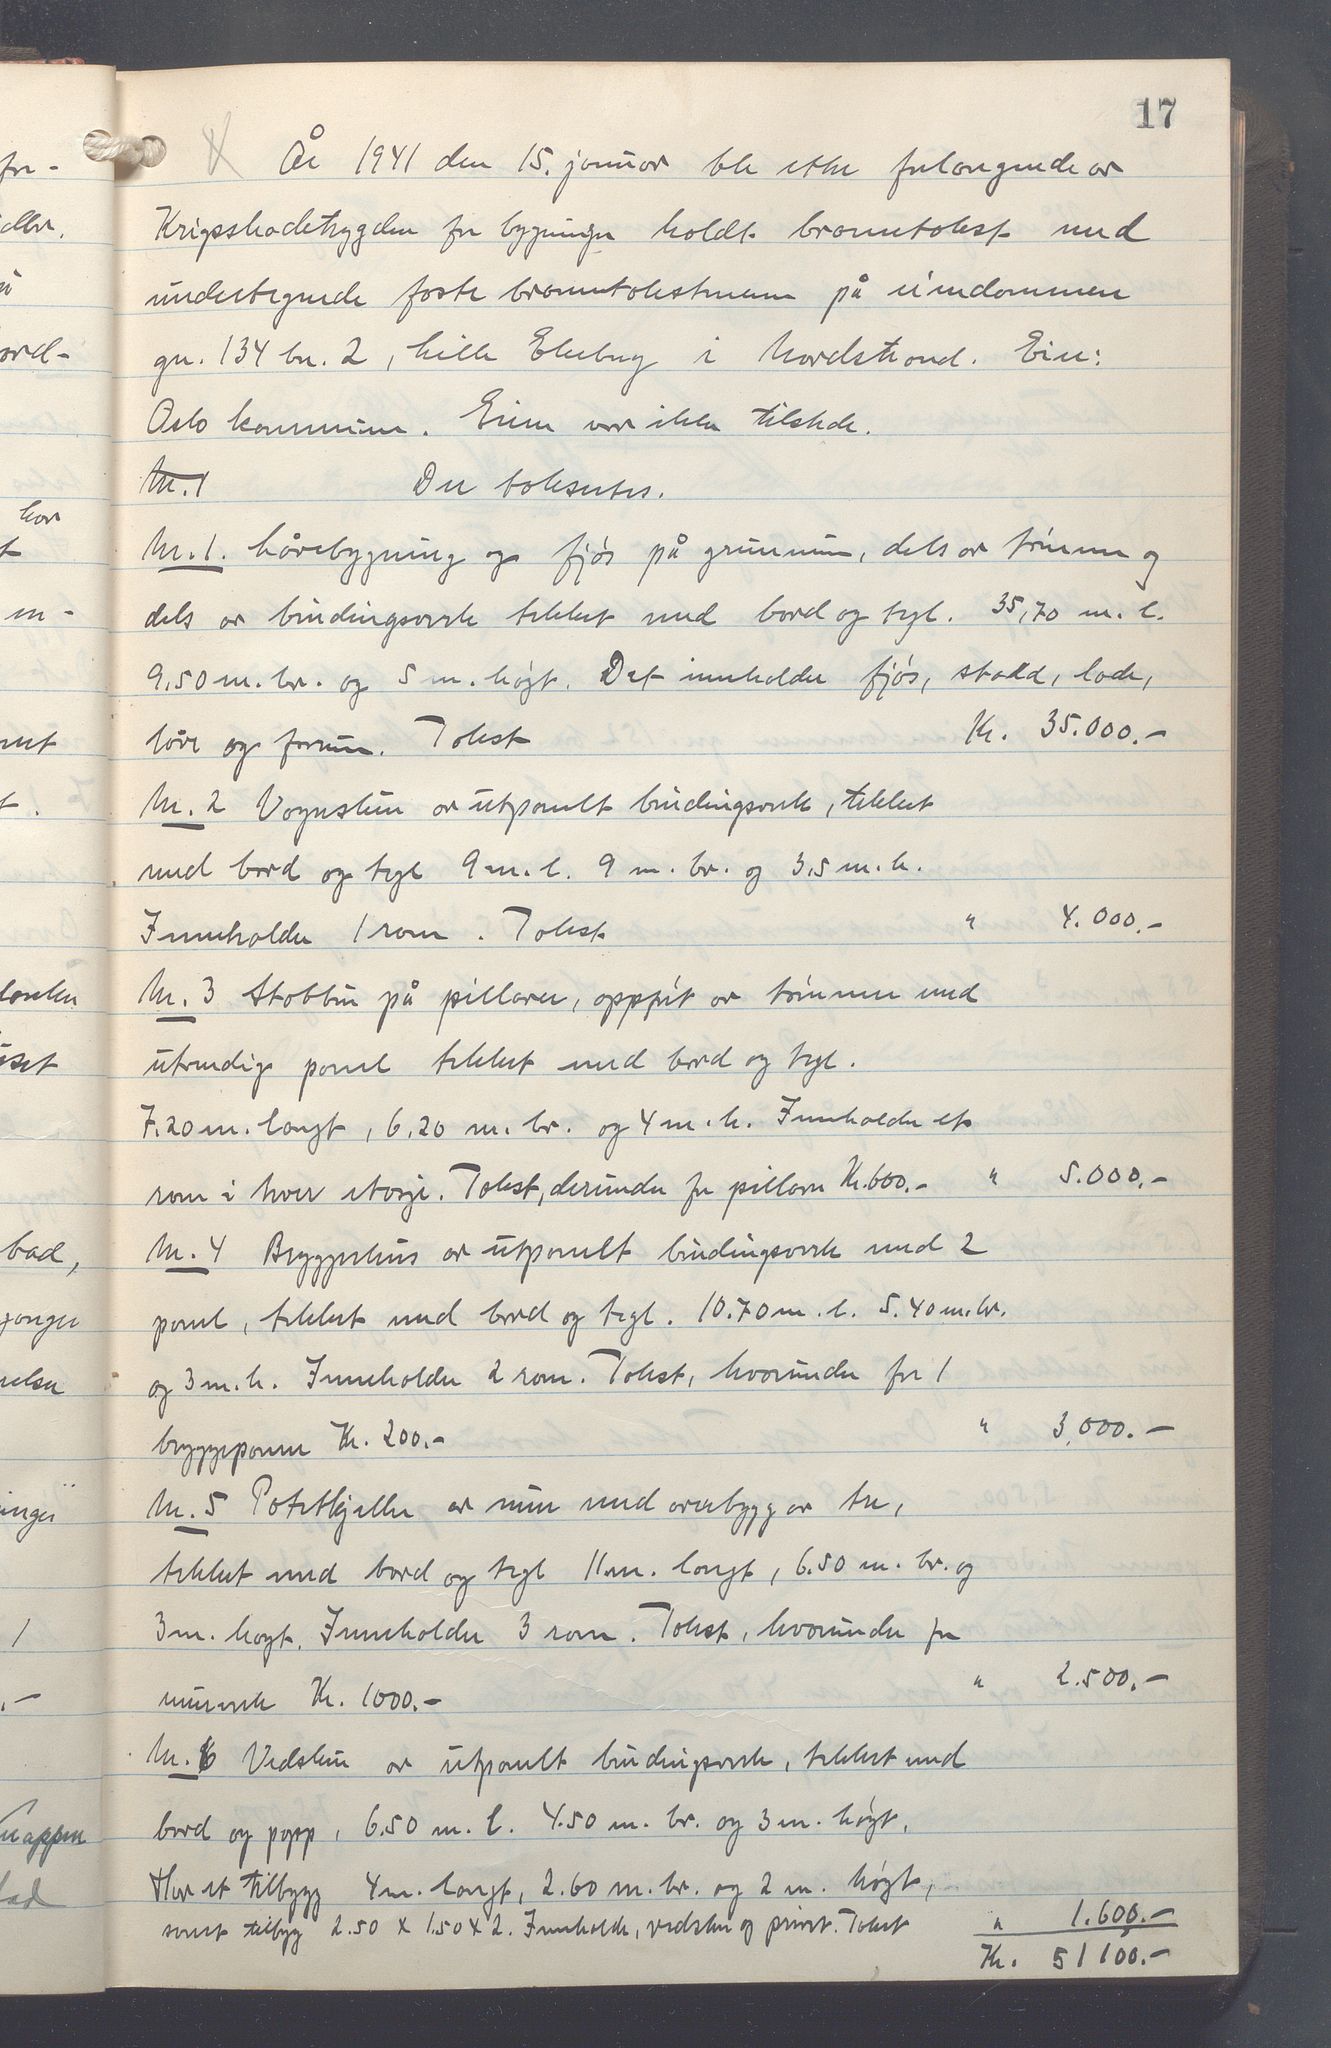 17
År 1941 den 15. januar ble etter forlangende av
Krigsskadetrygden for bygninger holdt branntakst med
undertegnede faste branntakstmenn på eiendommen
gnr. 134 bnr. 2, lille Ekeberg i Nordstrand. Eier:
Oslo kommune. Eieren var ikke tilstede.
Nr. 1 Der takseres.
Nr. 1. Låvebygning og fjøs på grunnmur, dels av tømmer og
dels av bindingsverk tekket med bord og tegl. 35,70 m. l.
9,50 m. br. og 5 m. høgt. Det inneholder fjøs, stall, lade,
låve og forrum. Takst Kr. 35.000.-
Nr. 2 Vognskur av utpanelt bindingsverk, tekket
med bord og tegl 9 m. l. 9 m. br. og 3,5 m. h.
Inneholder 1 rom. Takst " 4.000.-
Nr. 3 Stabbur på pillarer, oppført av tømmer med
utvendig panel tekket med bord og tegl.
7.20 m. langt, 6.20 m. br. og 4 m. h. Inneholder et
rom i hver etasje. Takst, derunder for pillarer Kr. 600.- " 5.000.-
Nr. 4 Bryggerhus av utpanelt bindingsverk med 2
panel, tekket med bord og tegl. 10.70 m. l. 5.40 m. br.
og 3 m. h. Inneholder 2 rom. Takst, hvorunder for 1
bryggepanne Kr. 200.- " 3.000.-
Nr. 5 Potetkjeller av mur med overbygg av tre,
tekket med bord og tegl 11 m. langt, 6.50 m. br. og
3 m. høgt. Inneholder 3 rom. Takst, hvorunder for
murverk Kr. 1000.- " 2.500.-
Nr. 6 Vedskur av utpanelt bindingsverk, tekket med
bord og papp, 6.50 m. l. 4.50 m. br. og 3 m. høgt.
Har et tilbygg 4 m. langt, 2.60 m. br. og 2 m. høgt,
samt tilbygg 2.50 x 1.50 x 2. Inneholder, vedskur og privet. Takst " 1.600.-
Kr. 51100.-